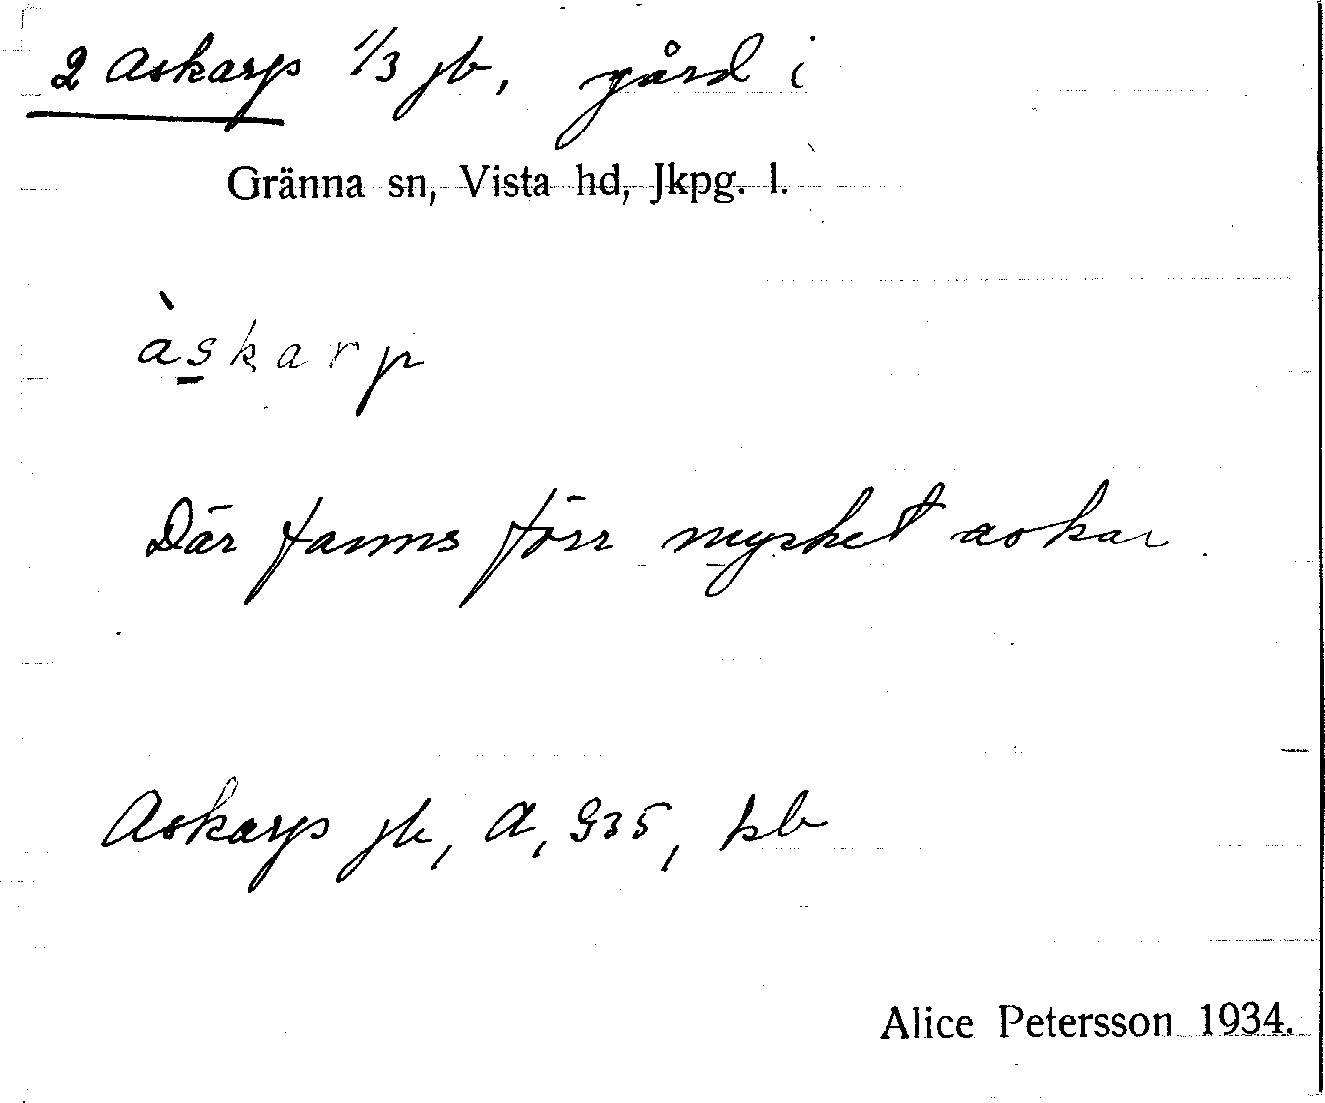 2 Askarp 1/3 jb, gård i
Gränna sn, Vista hd, Jkpg. l.
àskarp
Där fanns förr mycket askar.
Askarp jb, A, G35, kb
Alice Petersson 1934.